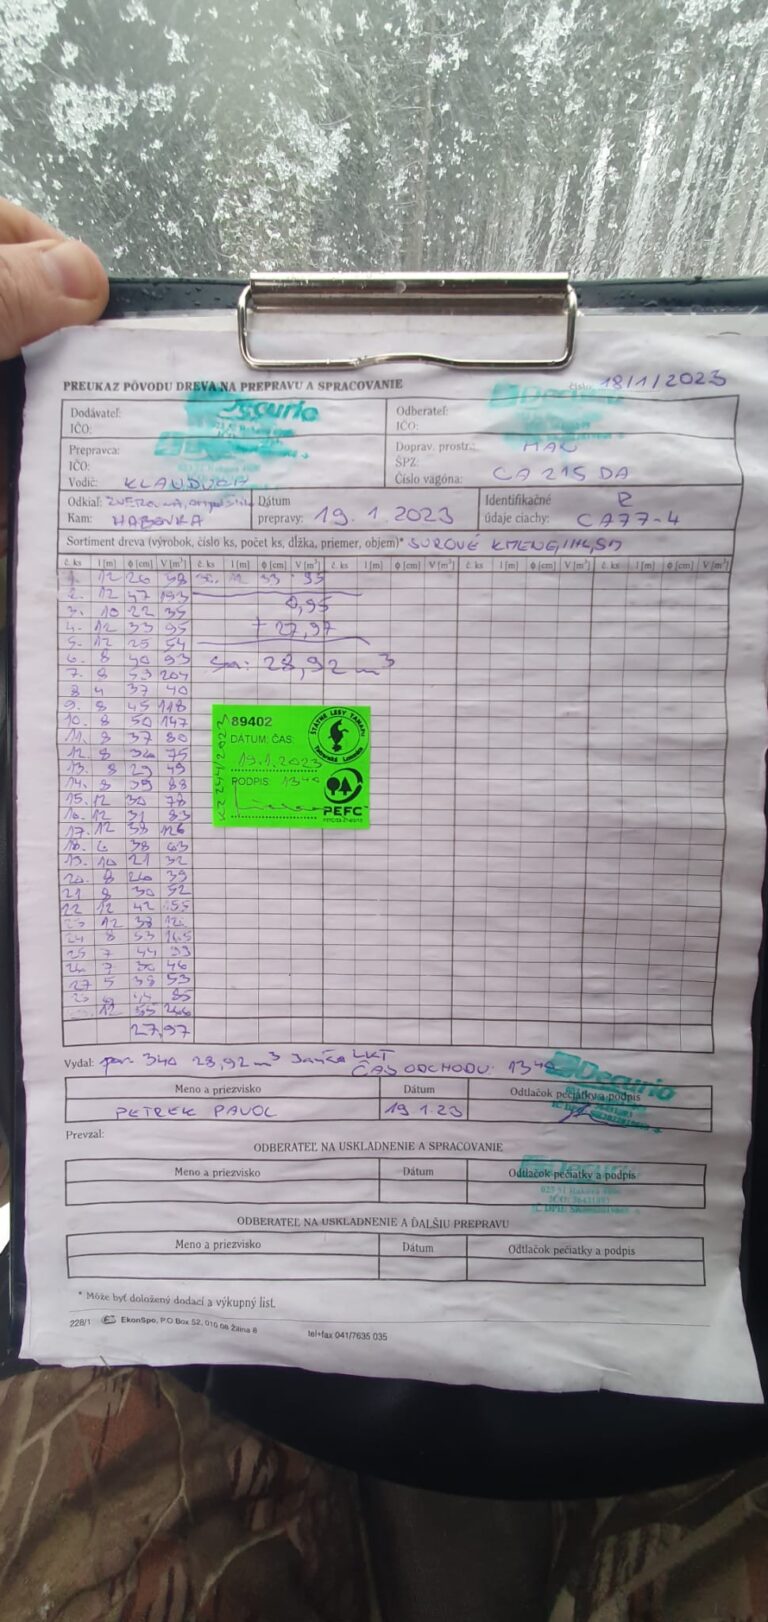 PREUKAZ PÔVODU DREVA NA PREPRAVU A SPRACOVANIE číslo: 18/1/2023
Dodávateľ: Decurio Odberateľ: Decurio
IČO: IČO:
Prepravca: Doprav. prostr.: MAN
IČO: ŠPZ:
Vodič: Číslo vagóna: CA 215 DA
Odkiaľ: Dátum Identifikačné R
Kam: HABOVKA prepravy: 19.1.2023 údaje ciachy: CA77-4
Sortiment dreva (výrobok, číslo ks, počet ks, dĺžka, priemer, objem)* SUROVÉ KMENE, IHL, SM
č. ks l [m] ϕ [cm] V [m³] č. ks l [m] ϕ [cm] V [m³] č. ks l [m] ϕ [cm] V [m³] č. ks l [m] ϕ [cm] V [m³] č. ks l [m] ϕ [cm] V [m³]
1. 12 26 58 30. 12 33 95
2. 12 47 193 0,95
3. 10 22 35 + 27,97
4. 12 33 95
5. 12 25 54
6. 8 40 93 28,92 m³
7. 8 53 204
8 4 37 40
9. 8 45 118
10. 8 50 147
11. 8 37 80
12. 8 36 75
13. 8 29 49
14. 8 39 88
15. 12 30 78
16. 12 31 83
17. 12 38 126
18. 6 38 63
19. 10 21 32
20. 8 26 39
21 8 30 52
22 12 42 155
23 12 38
24 8 53 165
25 7 44 99
26 7 30 46
27 5 38 53
85
12 55 266
27,97
89402
DÁTUM, ČAS:
19.1.2023
PODPIS 13 40
ŠTÁTNE LESY TANAPU
Tatranská Lomnica
PEFC
Vydal: 340 28,92 m³ LKT
ČAS ODCHODU 13 40
Decurio
Meno a priezvisko Dátum Odtlačok pečiatky a podpis
PETREK PAVOL 19 1.23
Prevzal:
ODBERATEĽ NA USKLADNENIE A SPRACOVANIE
Meno a priezvisko Dátum Odtlačok pečiatky a podpis
ODBERATEĽ NA USKLADNENIE A ĎALŠIU PREPRAVU
Meno a priezvisko Dátum Odtlačok pečiatky a podpis
* Môže byť doložený dodací a výkupný list.
228/1 EkonSpo, P.O Box 52, 010 08 Žilina 8 tel+fax 041/7635 035